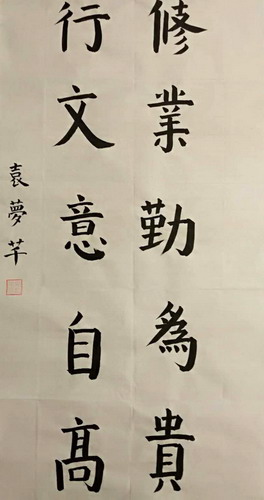 修業勤為貴
行文意自高
袁夢芊